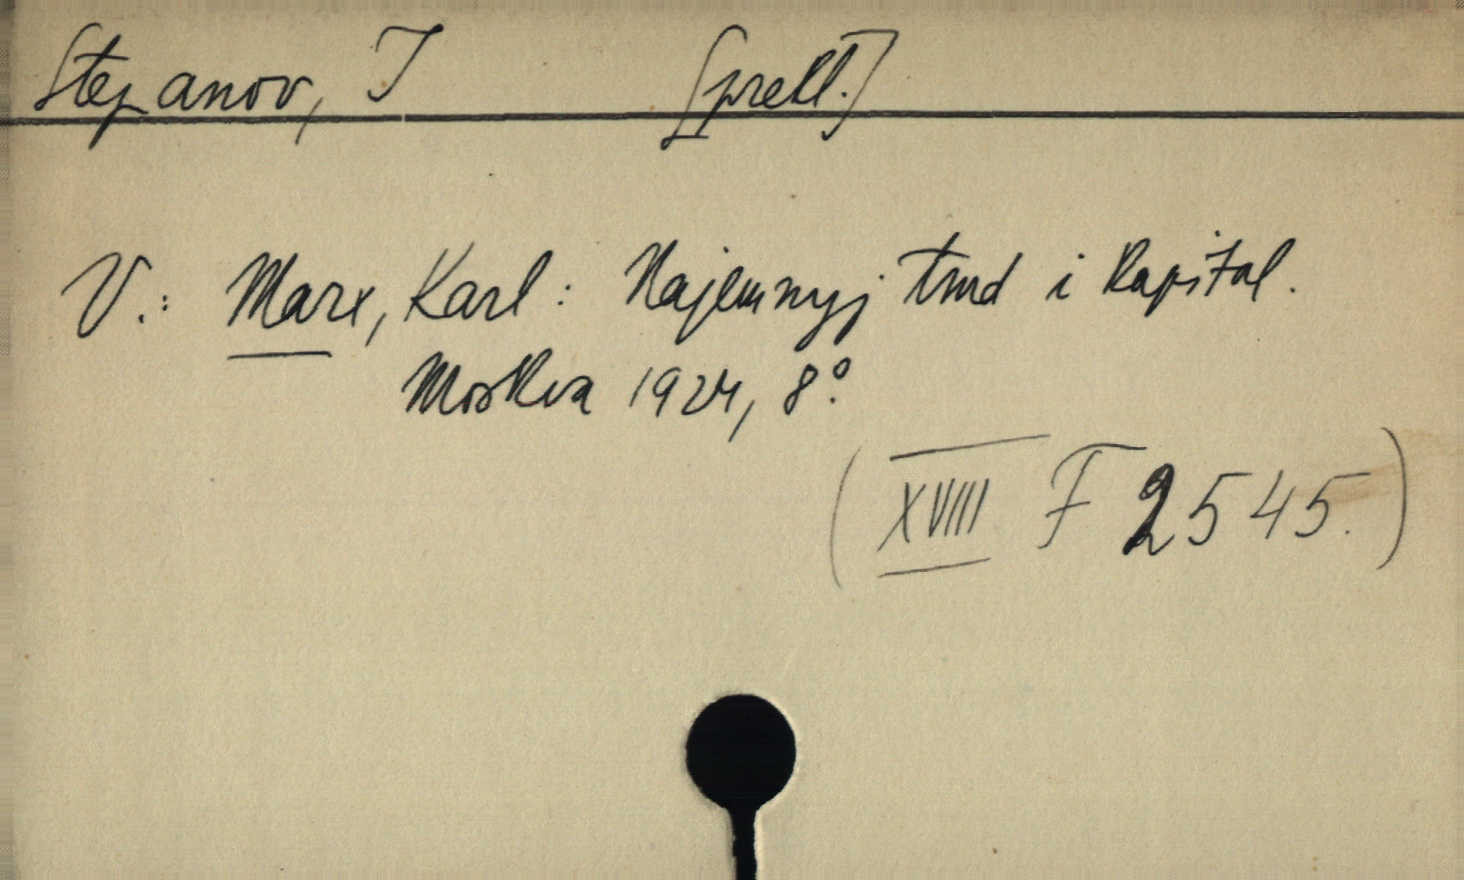 Stepanov, I [prekl.]
V.: Marx, Karl: Najemnyj trud i kapital.
Moskva 1924, 8°.
(XVIII F 2545.)